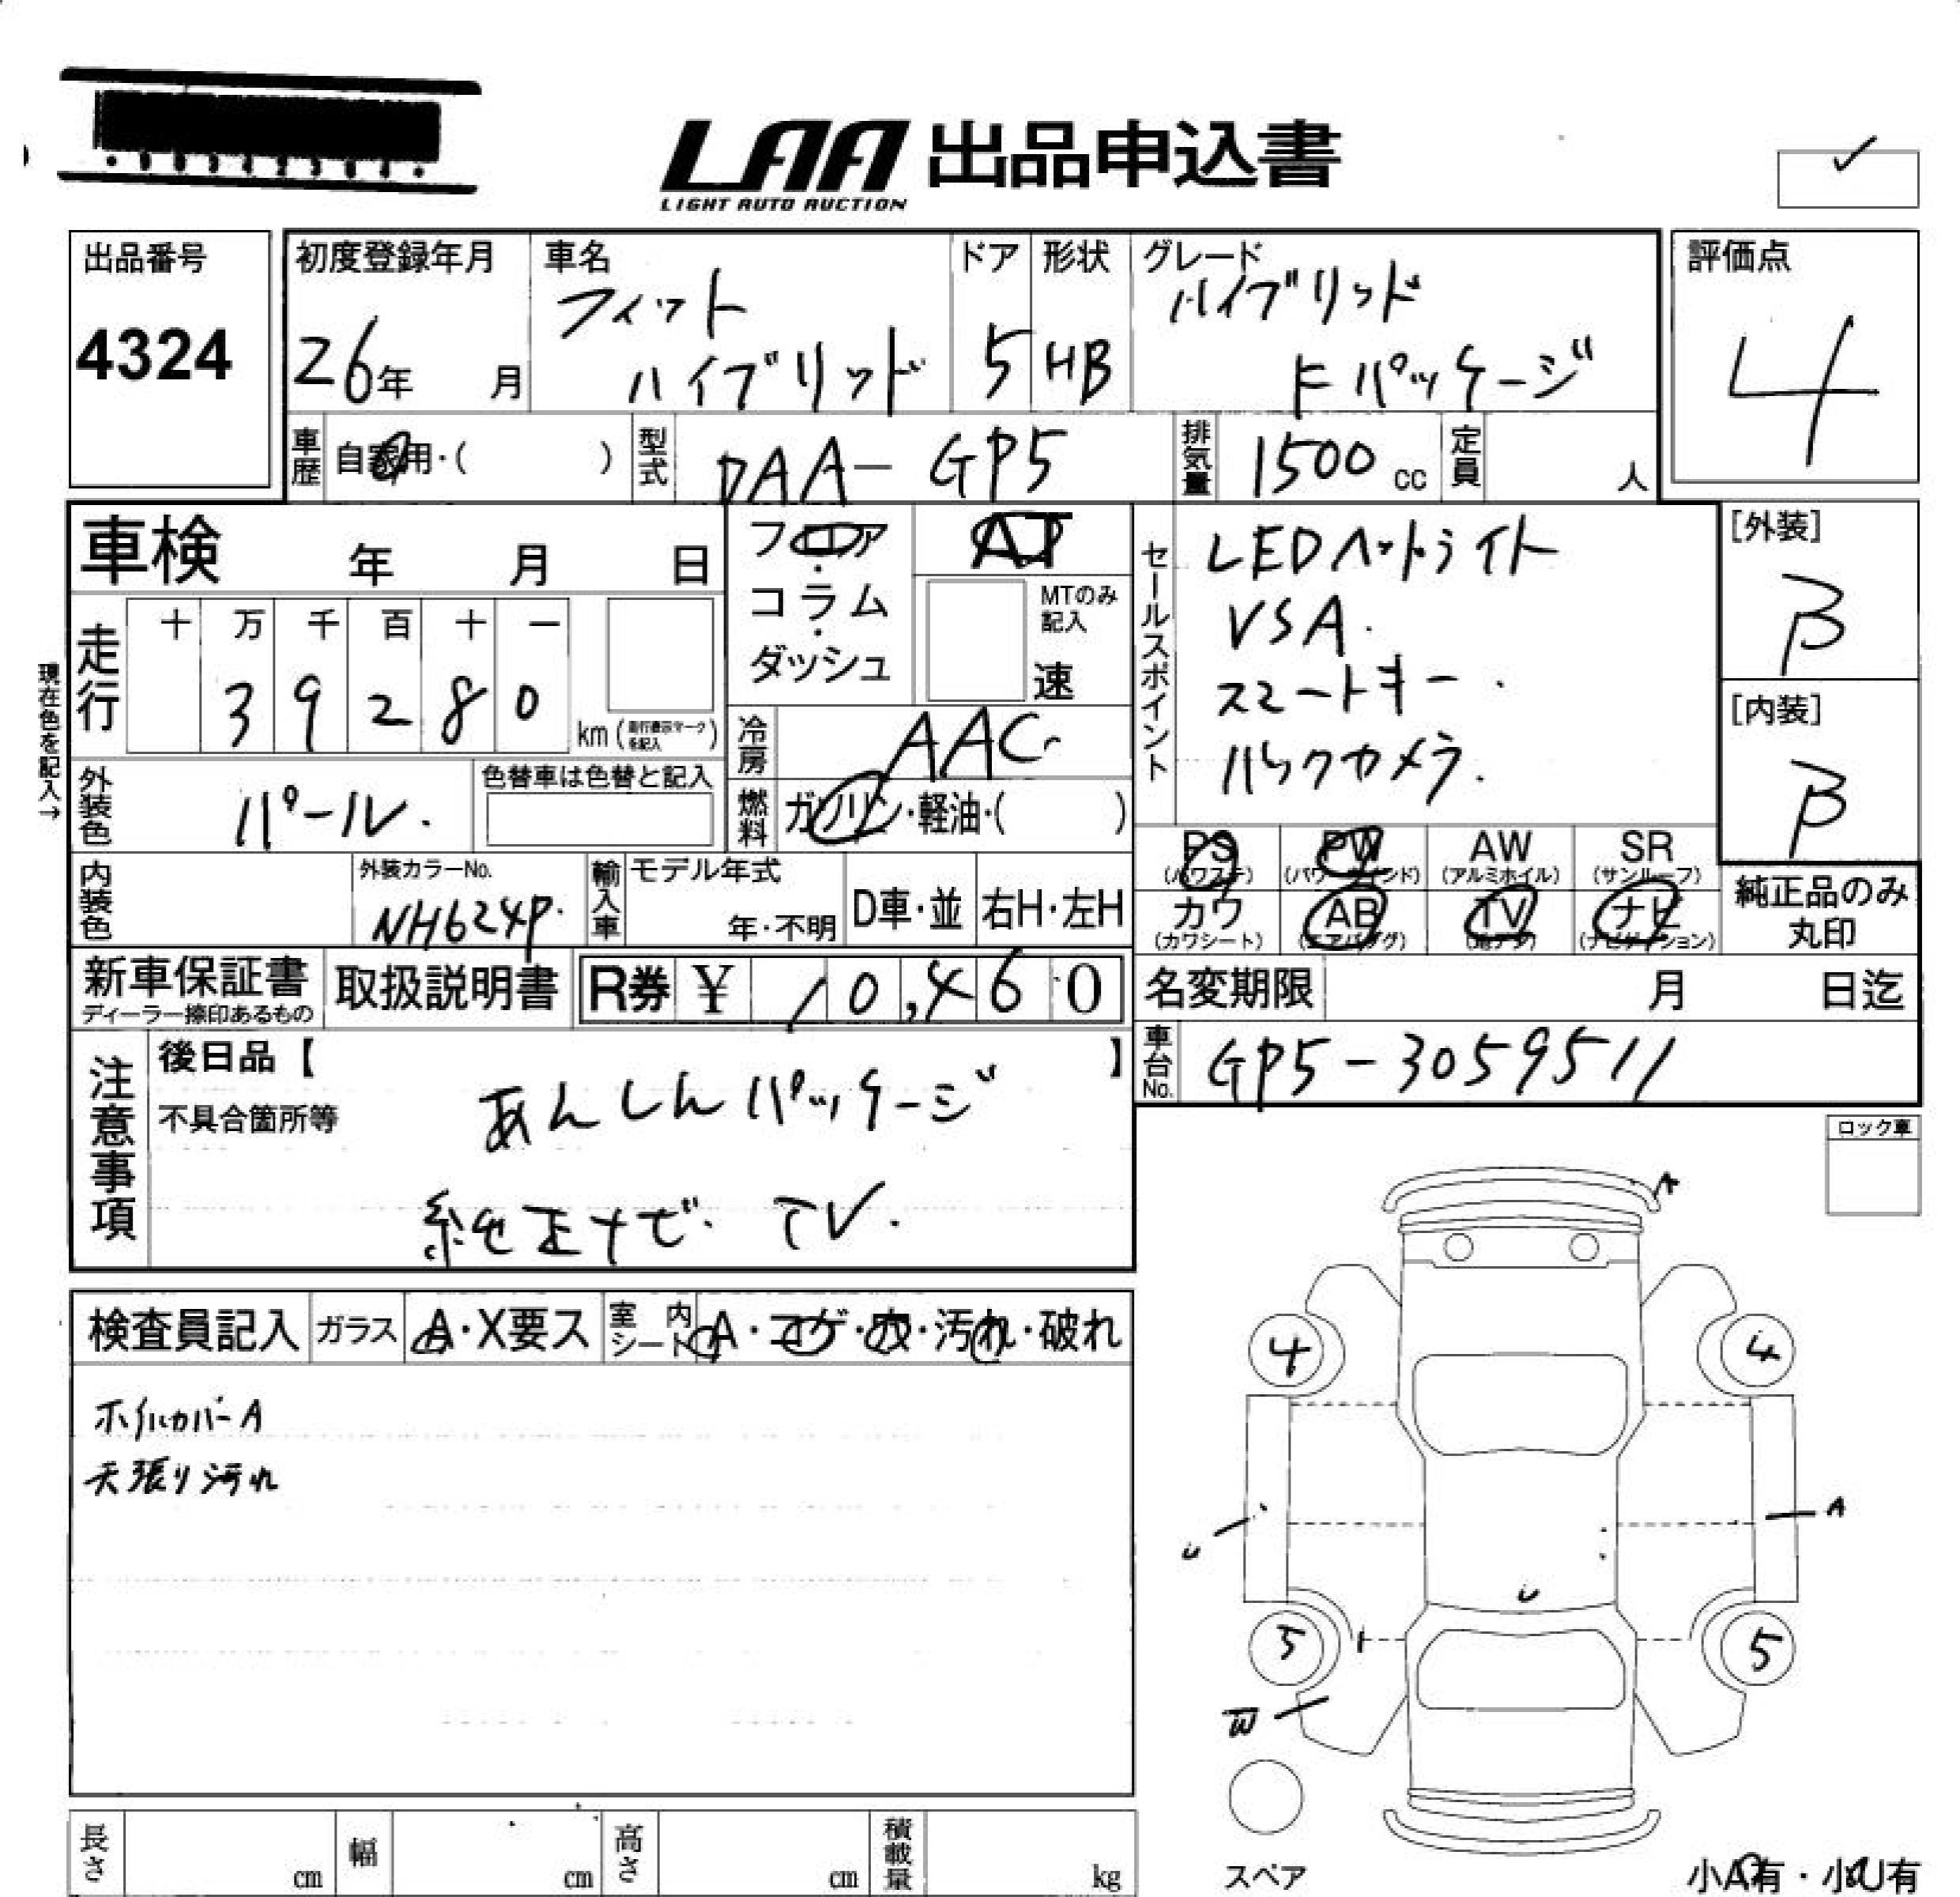 LAA 出品申込書
LIGHT AUTO AUCTION
出品番号
4324
初度登録年月
26年 月
車名
フィット
ハイブリッド
ドア
5
形状
HB
グレード
ハイブリッド
Fパッケージ
評価点
4
車歴 自家用・( )
型式 DAA-GP5
排気量 1500 cc
定員 人
車検 年 月 日
フロア・コラム・ダッシュ
AT
MTのみ記入
速
セールスポイント
LEDヘッドライト
VSA.
スマートキー.
バックカメラ.
[外装]
B
[内装]
B
現在色を記入→
走行 十 万 千 百 十 一
3 9 2 8 0
km (走行表示マークを記入)
冷房 AAC
燃料 ガソリン・軽油・( )
外装色 パール.
色替車は色替と記入
内装色
外装カラーNo.
NH624P.
輸入車 モデル年式
年・不明
D車・並 右H・左H
PS (パワステ)
PW (パワーウインド)
AW (アルミホイル)
SR (サンルーフ)
カワ (カワシート)
AB (エアバッグ)
TV (地デジ)
ナビ (ナビゲーション)
純正品のみ
丸印
新車保証書
ディーラー捺印あるもの
取扱説明書
R券 ¥ 10,460
名変期限 月 日迄
車台No. GP5-3059511
注意事項
後日品【 】
不具合箇所等
あんしんパッケージ
純正ナビ. TV.
ロック車
検査員記入 ガラス A・X要ス 室内シート A・コゲ・穴・汚れ・破れ
ホイルカバーA
天張り汚れ
A
4 4
U A
U
5 5
W
スペア
小A有・小U有
長さ cm 幅 cm 高さ cm 積載量 kg